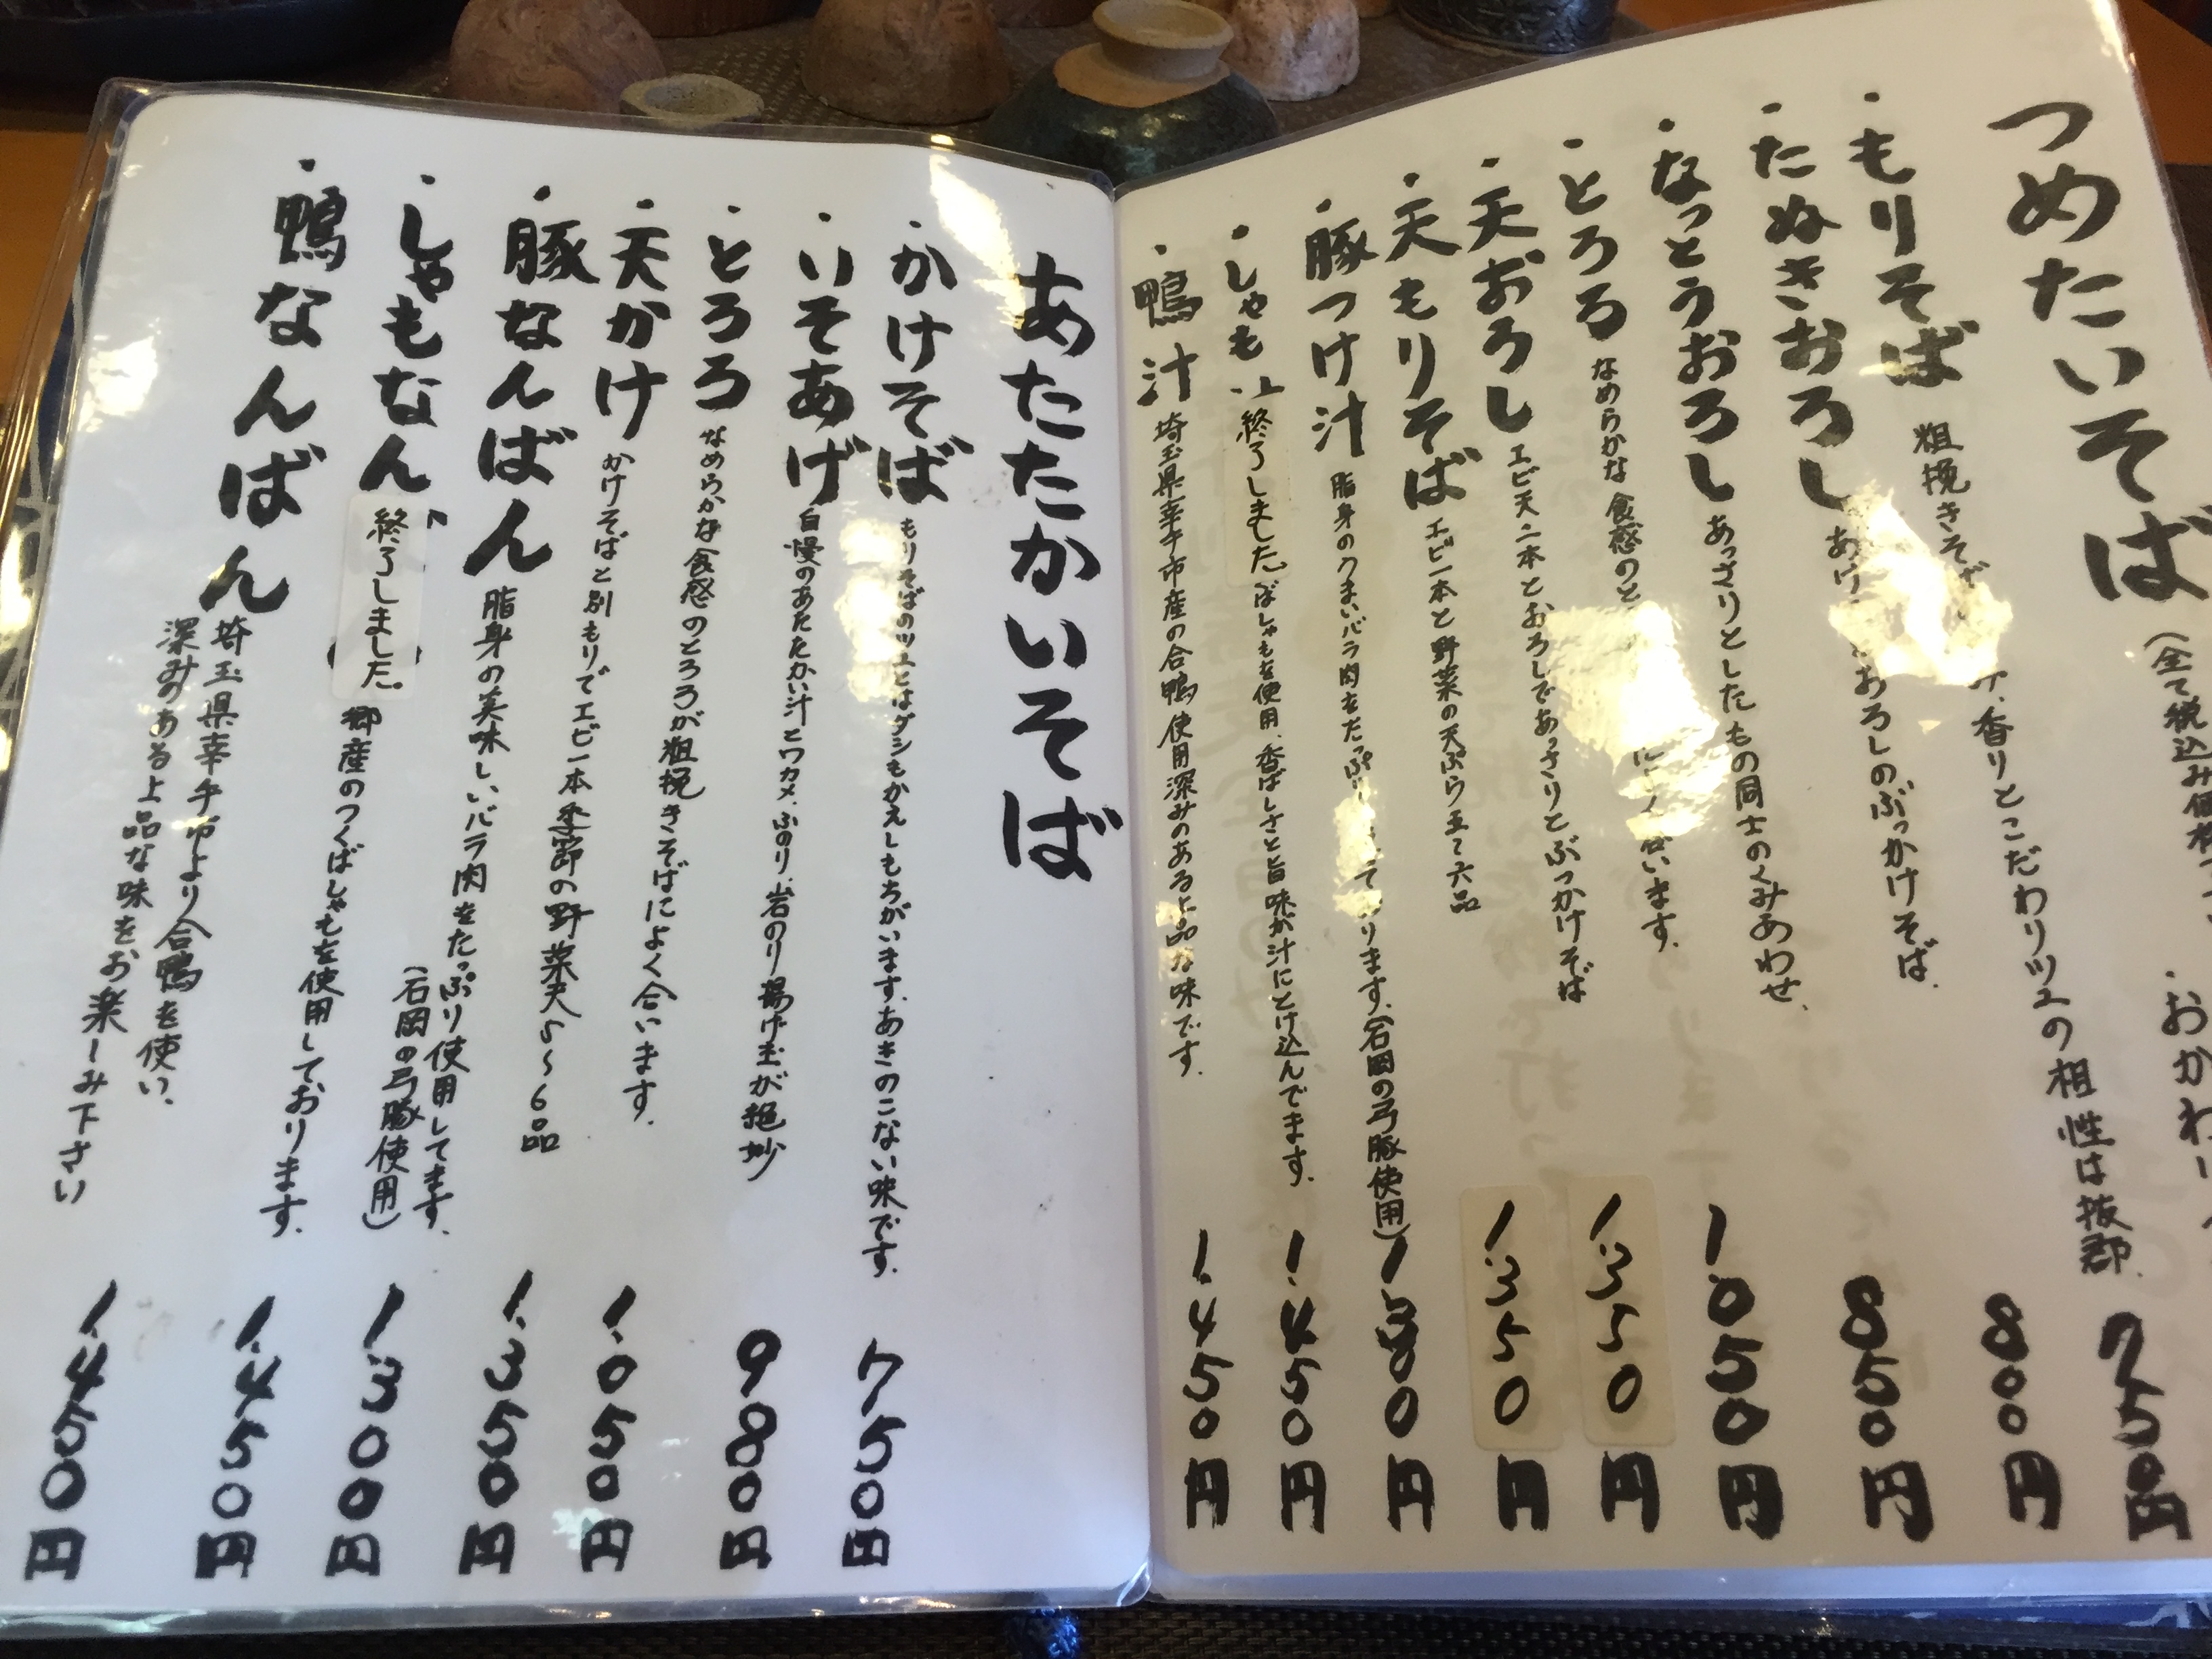 つめたいそば
(全て税込み価格
・おかわり
・もりそば
粗挽きそば
香りとこだわりツユの相性は抜郡.
750円
・たぬきおろし
おろしのぶっかけそば.
800円
・なっとうおろし
あっさりとしたもの同士のくみあわせ.
850円
・とろろ
なめらかな食感のと
います.
1.050円
・天おろし
エビ天二本とおろしであっさりとぶっかけそば
1350円
・天もりそば
エビ一本と野菜の天ぷら五て六品
1350円
・豚つけ汁
脂身のうまいバラ肉をたっぷり
ります.(石岡の弓豚使用)
円
・しゃも
終了しました。
ばしゃもを使用.香ばしさと旨味が汁にとけ込んでます.
1.450円
・鴨汁
埼玉県幸手市産の合鴨使用深みのある上品な味です.
1.450円
あたたかいそば
・かけそば
もりそばのツユとはダシもかえしもちがいます.あきのこない味です.
750円
・いそあげ
自慢のあたたかい汁とワカメ.ふのり.岩のり揚げ玉が絶妙
980円
・とろろ
なめらかな食感のとろろが粗挽きそばによく合います.
1.050円
・天かけ
かけそばと別もりでエビ一本季節の野菜天5〜6品
1.350円
・豚なんばん
脂身の美味しいバラ肉をたっぷり使用してます.
(石岡の弓豚使用)
1300円
・しゃもなん
終了しました。
郷産のつくばしゃもを使用しております.
1.450円
・鴨なんばん
埼玉県幸手市より合鴨を使い.
深みのある上品な味をお楽しみ下さい
1.450円